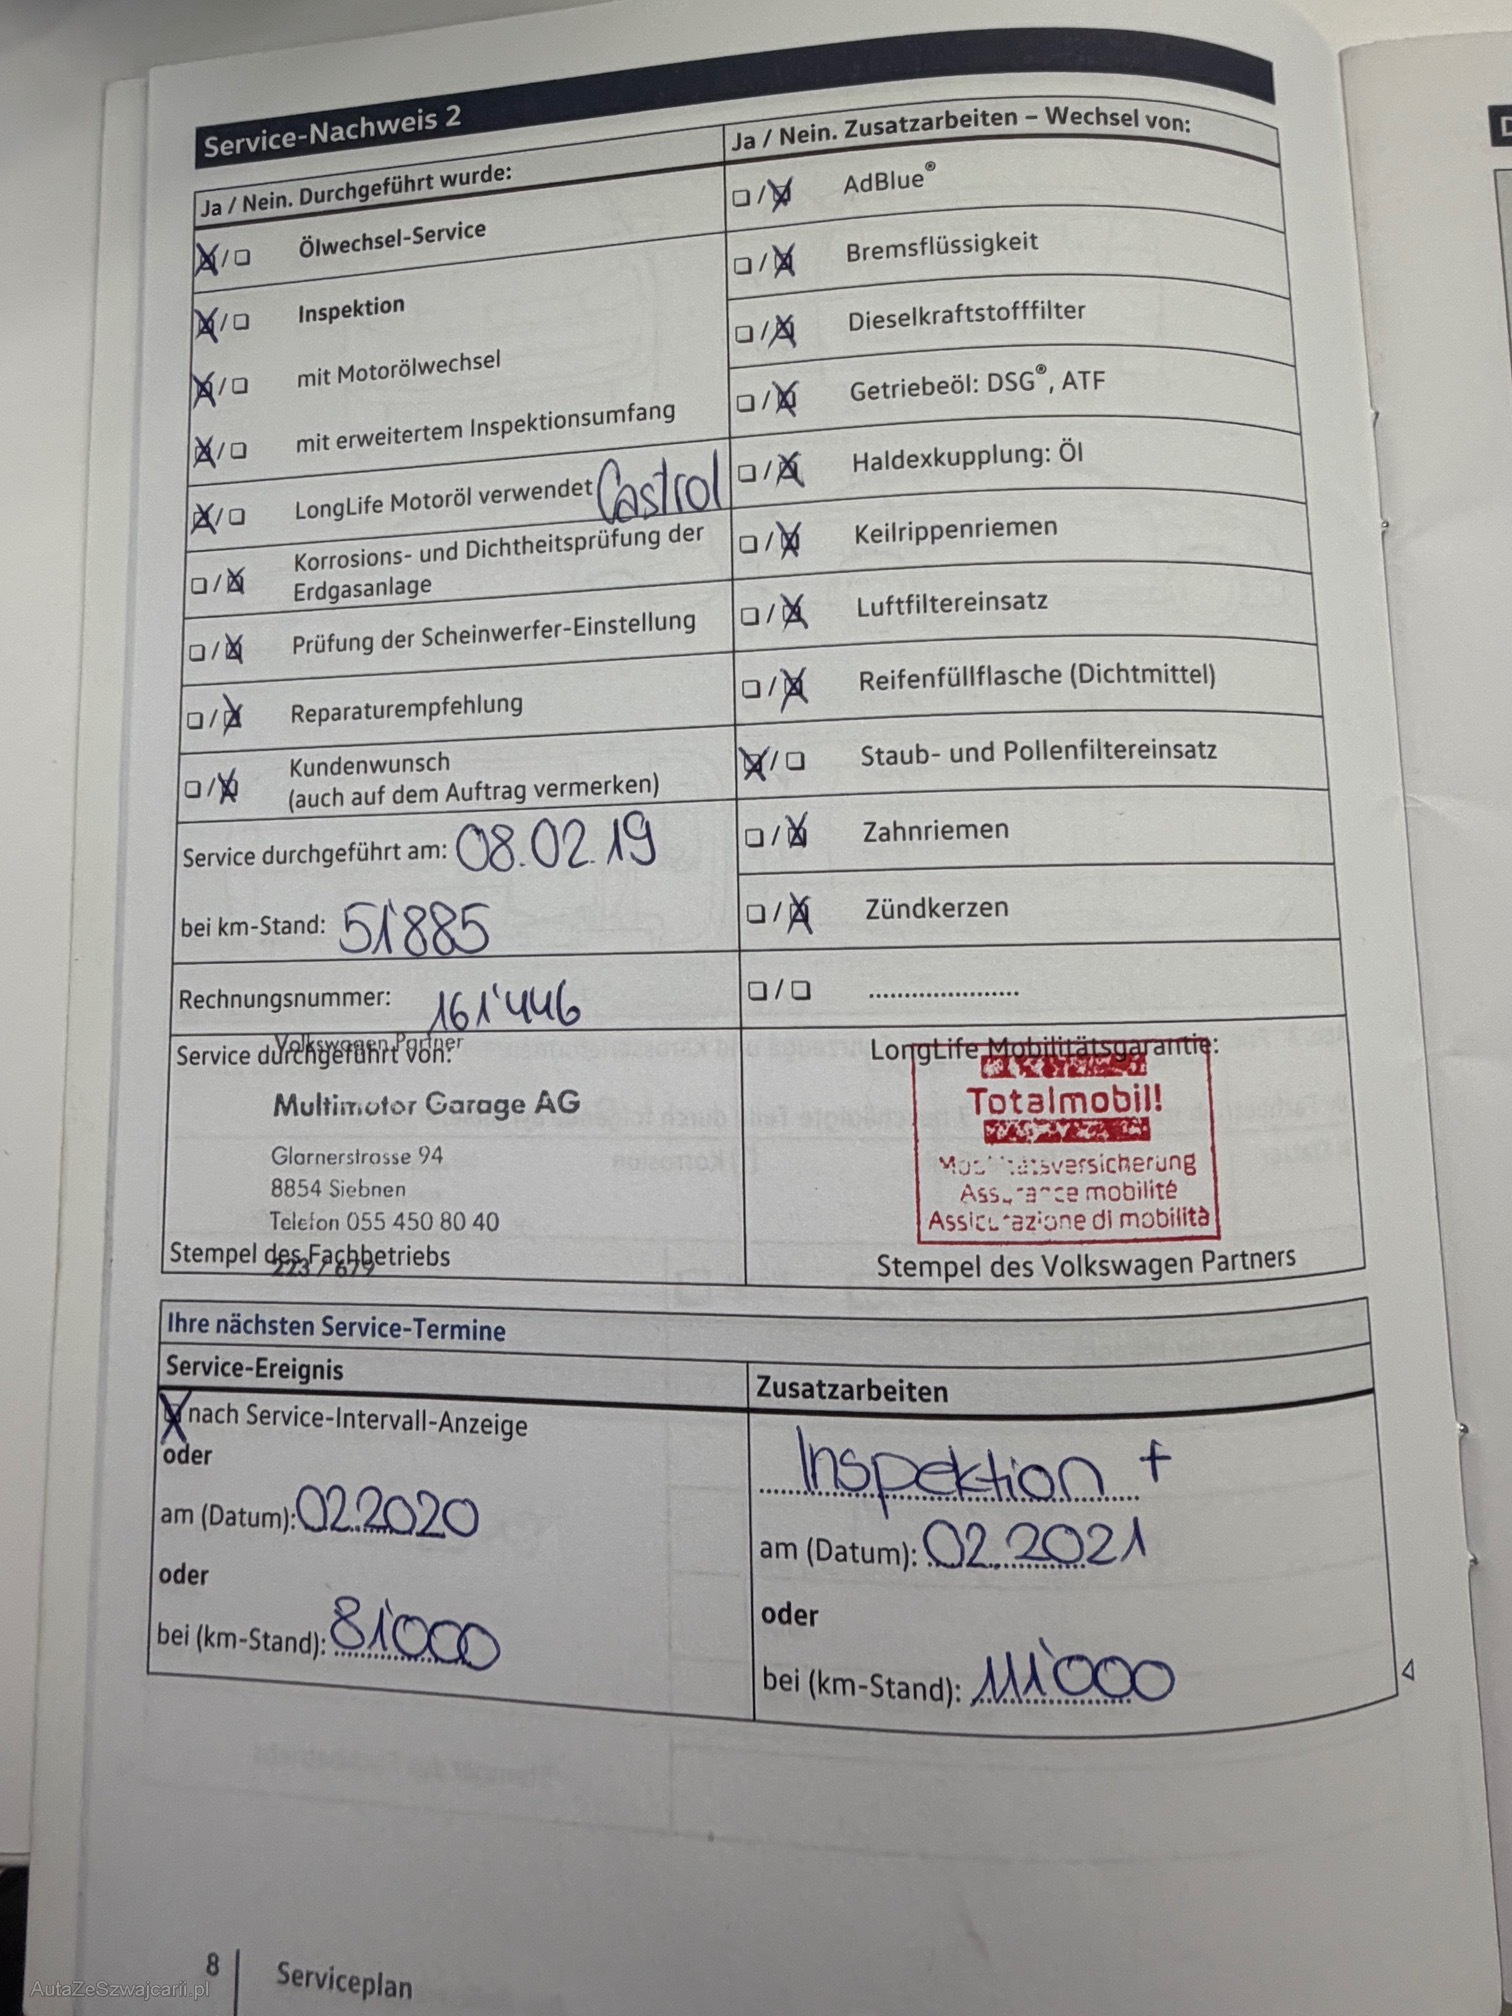 Service-Nachweis 2
Ja / Nein. Durchgeführt wurde:
Ölwechsel-Service
Inspektion
mit Motorölwechsel
mit erweitertem Inspektionsumfang
LongLife Motoröl verwendet Castrol
Korrosions- und Dichtheitsprüfung der
Erdgasanlage
Prüfung der Scheinwerfer-Einstellung
Reparaturempfehlung
Kundenwunsch
(auch auf dem Auftrag vermerken)
Service durchgeführt am: 08.02.19
bei km-Stand: 51'885
Rechnungsnummer: 161'446
Ja / Nein. Zusatzarbeiten – Wechsel von:
AdBlue®
Bremsflüssigkeit
Dieselkraftstofffilter
Getriebeöl: DSG®, ATF
Haldexkupplung: Öl
Keilrippenriemen
Luftfiltereinsatz
Reifenfüllflasche (Dichtmittel)
Staub- und Pollenfiltereinsatz
Zahnriemen
Zündkerzen
.....................
Volkswagen Partner
Service durchgeführt von:
Multimotor Garage AG
Glarnerstrasse 94
8854 Siebnen
Telefon 055 450 80 40
Stempel des Fachbetriebs
223 / 679
LongLife Mobilitätsgarantie:
Totalmobil!
Mobilitätsversicherung
Assurance mobilité
Assicurazione di mobilità
Stempel des Volkswagen Partners
Ihre nächsten Service-Termine
Service-Ereignis
nach Service-Intervall-Anzeige
oder
am (Datum): 02.2020
oder
bei (km-Stand): 81'000
Zusatzarbeiten
Inspektion +
am (Datum): 02.2021
oder
bei (km-Stand): 111'000
8
Serviceplan
AutaZeSzwajcarii.pl